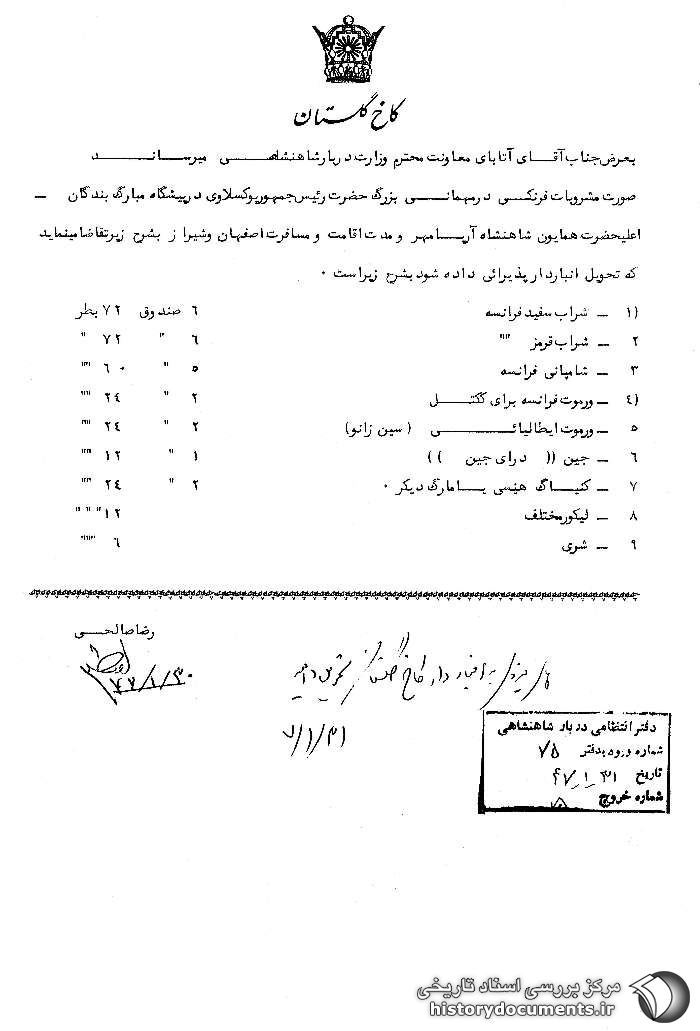 کاخ گلستان
بعرض جناب آقای آتابای معاونت محترم وزارت دربار شاهنشاهی میرساند
صورت مشروبات فرنگی در مهمانی بزرگ حضرت رئیس جمهور یوگسلاوی در پیشگاه مبارک بندگان –
اعلیحضرت همایون شاهنشاه آریامهر و مدت اقامت و مسافرت اصفهان وشیراز بشرح زیر تقاضا مینماید
که تحویل انباردار پذیرائی داده شود بشرح زیر است ۰
۱) – شراب سفید فرانسه ۶ صندوق ۷۲ بطر
۲ – شراب قرمز "" ۶ " ۷۲ "
۳ – شامپانی فرانسه ۵ " ۶۰ ""
۴) – ورموت فرانسه برای ککتل ۲ " ۲۴ ""
۵ – ورموت ایطالیائی (سین زانو) ۲ " ۲۴ ""
۶ – جین (( درای جین )) ۱ " ۱۲ ""
۷ – کنیاک هنسی یا مارک دیگر ۰ ۲ " ۲۴ ""
۸ – لیکور مختلف ۱۲ " " "
۹ – شری ۶ ""
رضا صالحی
۴۷/۱/۳۰
به انباردار کاخ گلستان تحویل دهید
۷/۱/۳۱
دفتر انتظامی دربار شاهنشاهی
شماره ورود بدفتر ۷۵
تاریخ ۴۷/۱/۳۱
شماره خروج ۷۵
مرکز بررسی اسناد تاریخی
historydocuments.ir